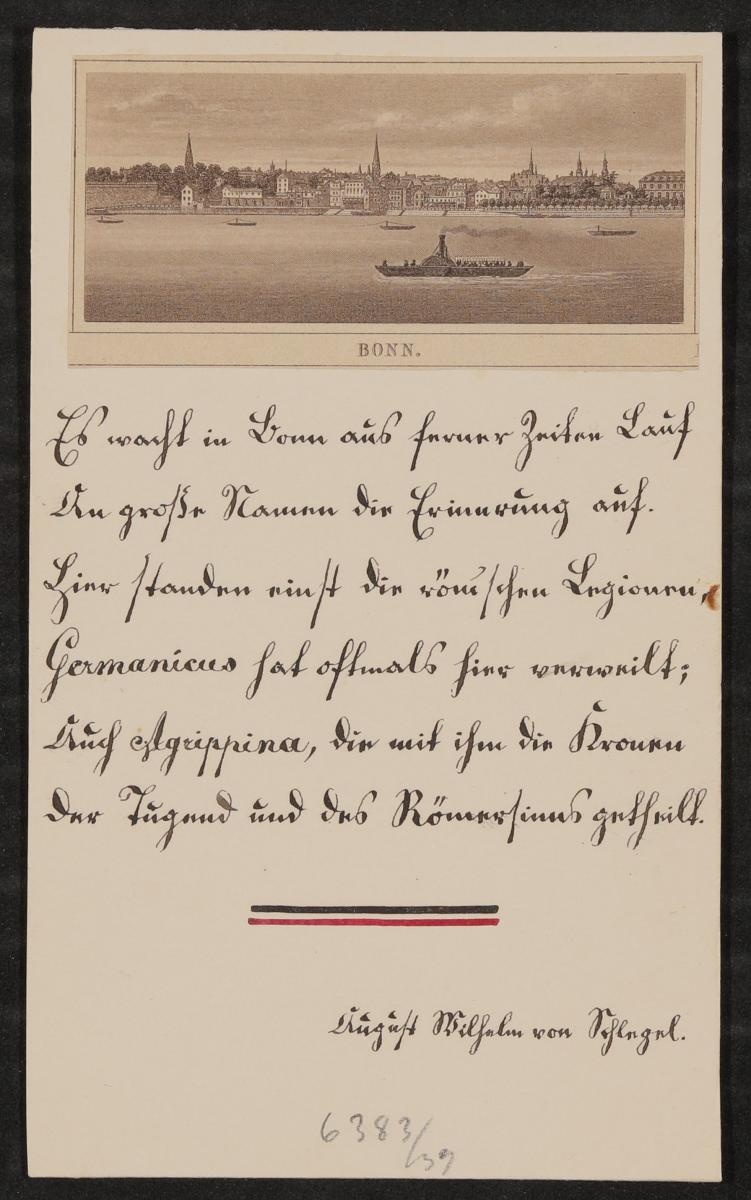 BONN.
Es wacht in Bonn aus ferner Zeiten Lauf
An große Namen die Erinnrung auf.
Hier standen einst die röm'schen Legionen,
Germanicus hat oftmals hier verweilt;
Auch Agrippina, die mit ihm die Kronen
Der Tugend und des Römersinns getheilt.
August Wilhelm von Schlegel.
6383/39